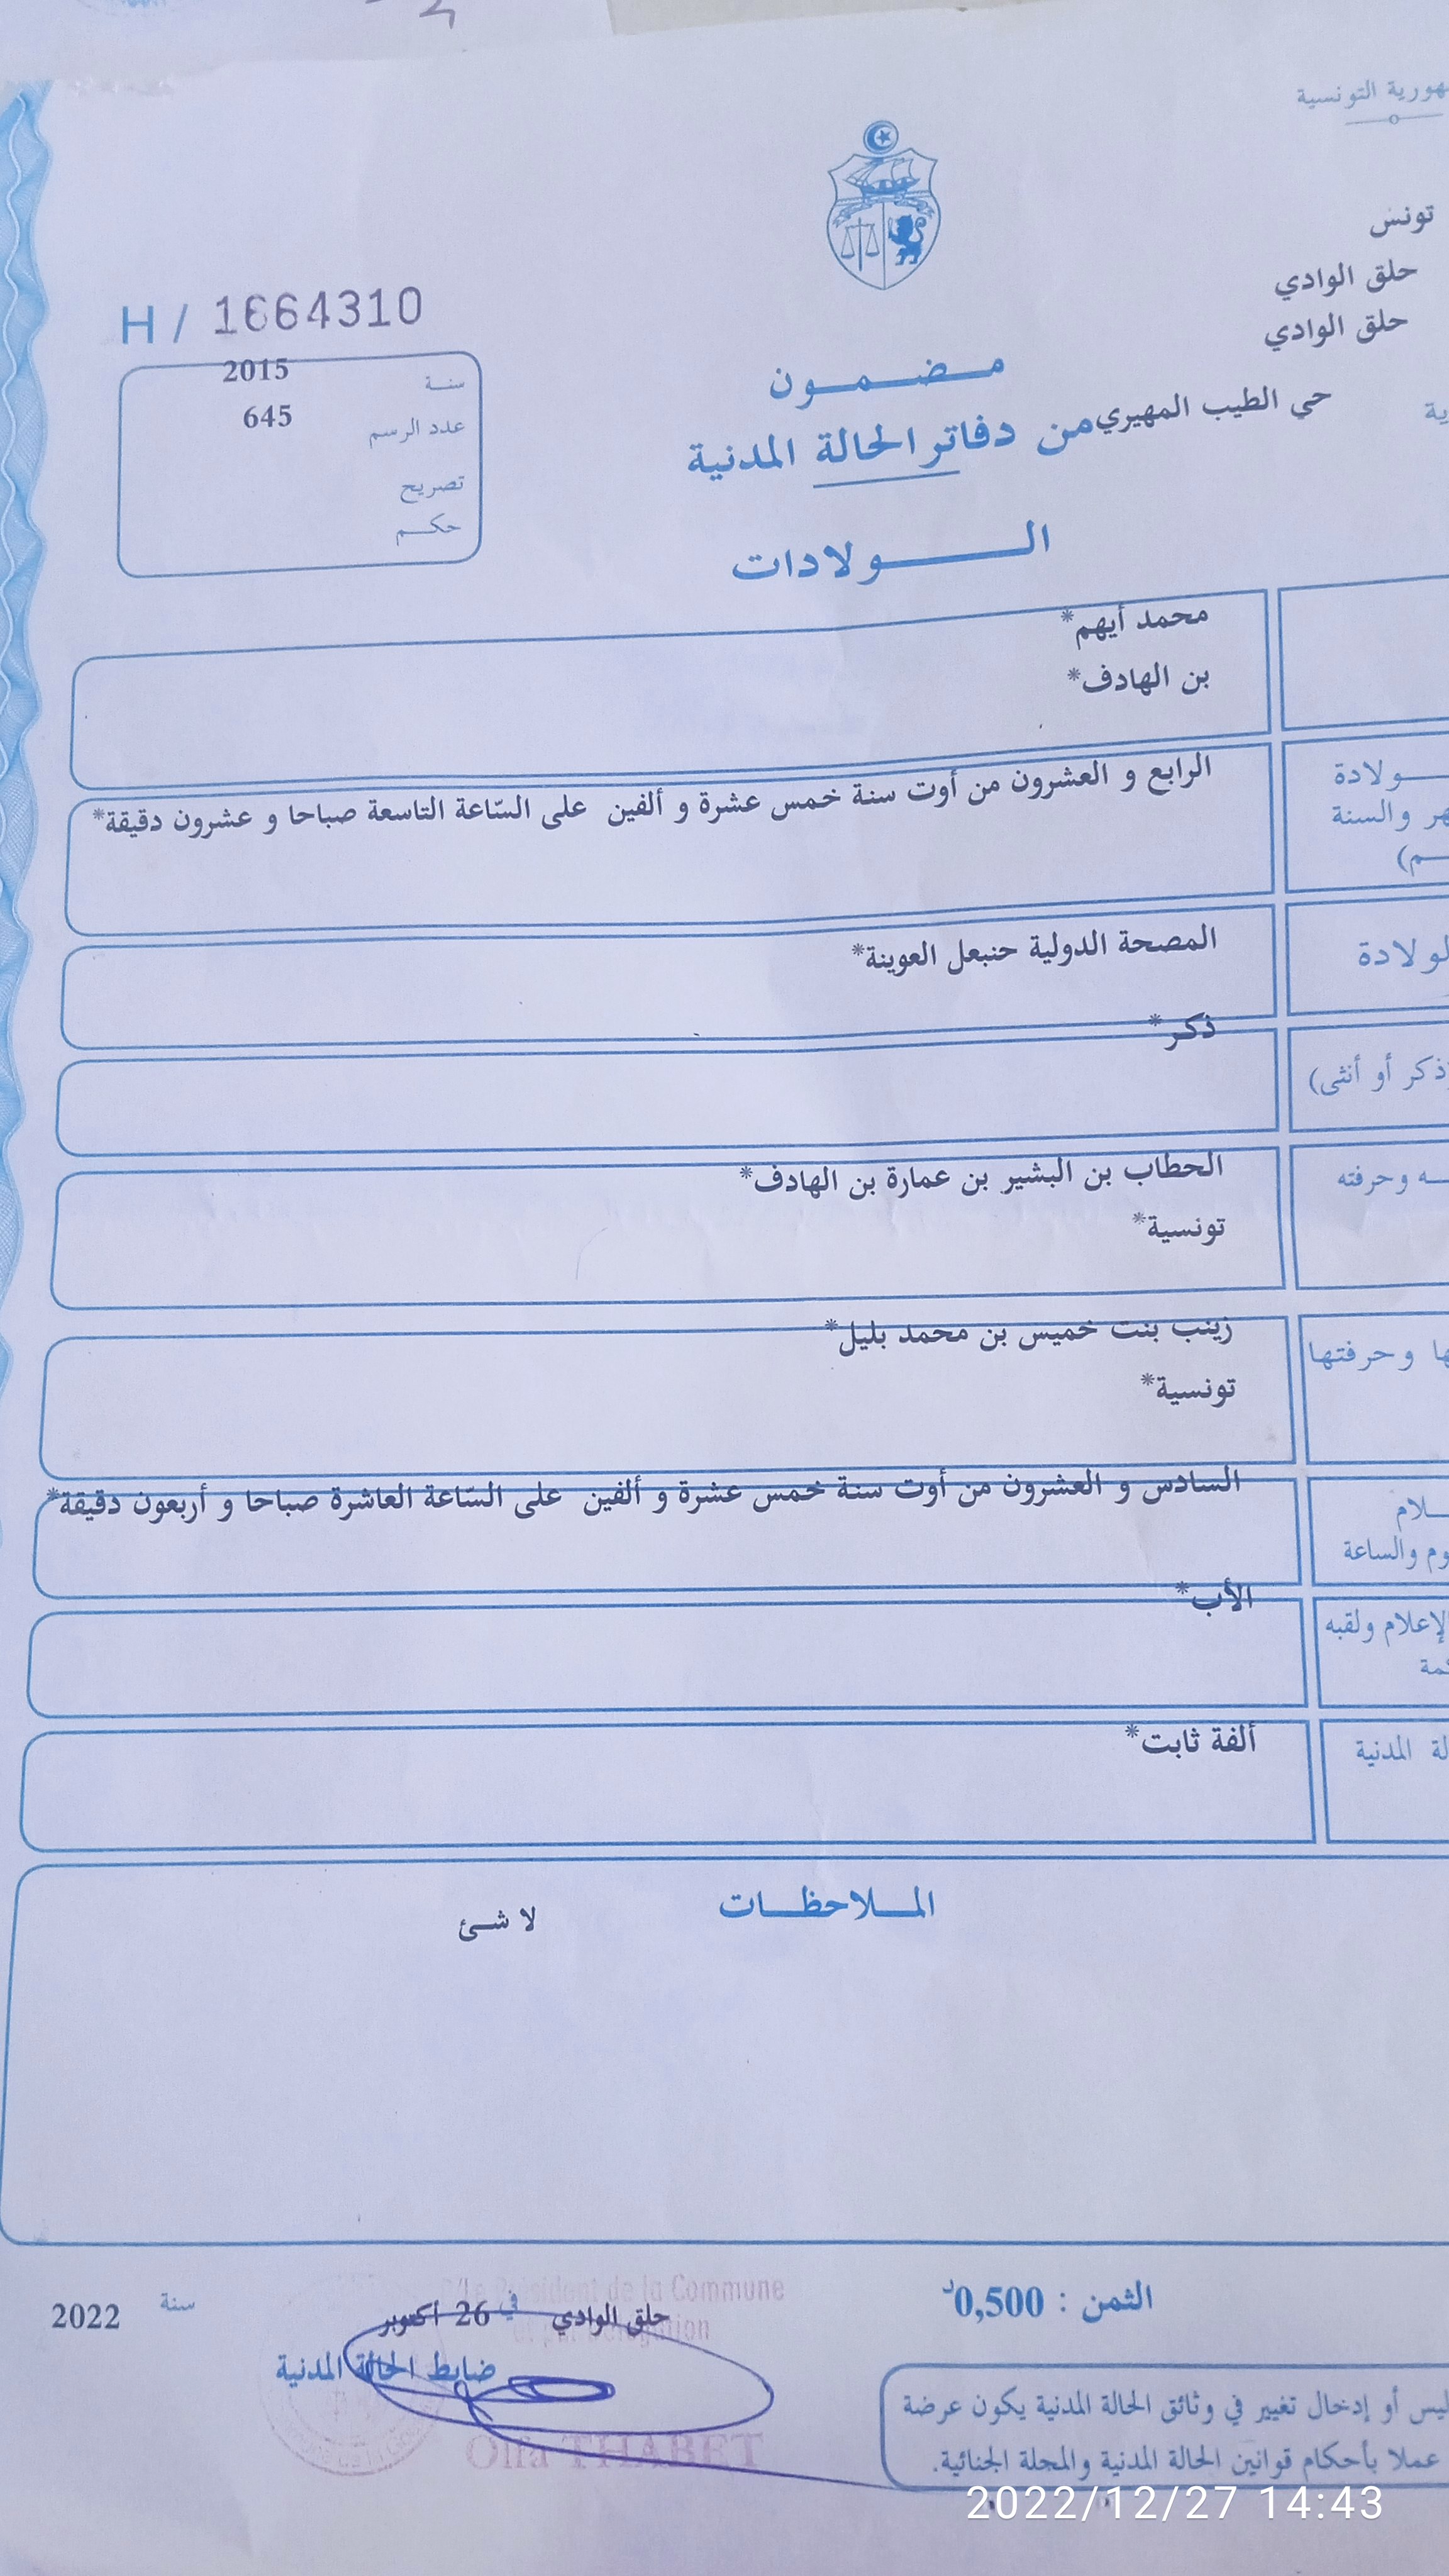 التونسية
تونس
حلق الوادي
حلق الوادي
حي الطيب المهيري
H / 1664310
سنة 2015
عدد الرسم 645
تصريح
حكم
مضمون
من دفاتر الحالة المدنية
الولادات
محمد أيهم*
بن الهادف*
الرابع و العشرون من أوت سنة خمس عشرة و ألفين على السّاعة التاسعة صباحا و عشرون دقيقة*
والسنة
المصحة الدولية حنبعل العوينة*
ذكر*
ذكر أو أنثى)
الحطاب بن البشير بن عمارة بن الهادف*
وحرفته
تونسية*
زينب بنت خميس بن محمد بليل*
وحرفتها
تونسية*
السادس و العشرون من أوت سنة خمس عشرة و ألفين على السّاعة العاشرة صباحا و أربعون دقيقة*
والساعة
الأب*
ولقبه
ألفة ثابت*
المدنية
الملاحظات
لا شئ
الثمن : 0,500د
حلق الوادي في 26 أكتوبر سنة 2022
ضابط الحالة المدنية
Président de la Commune
Olfa THABET
أو إدخال تغيير في وثائق الحالة المدنية يكون عرضة
عملا بأحكام قوانين الحالة المدنية والمجلة الجنائية.
2022/12/27 14:43